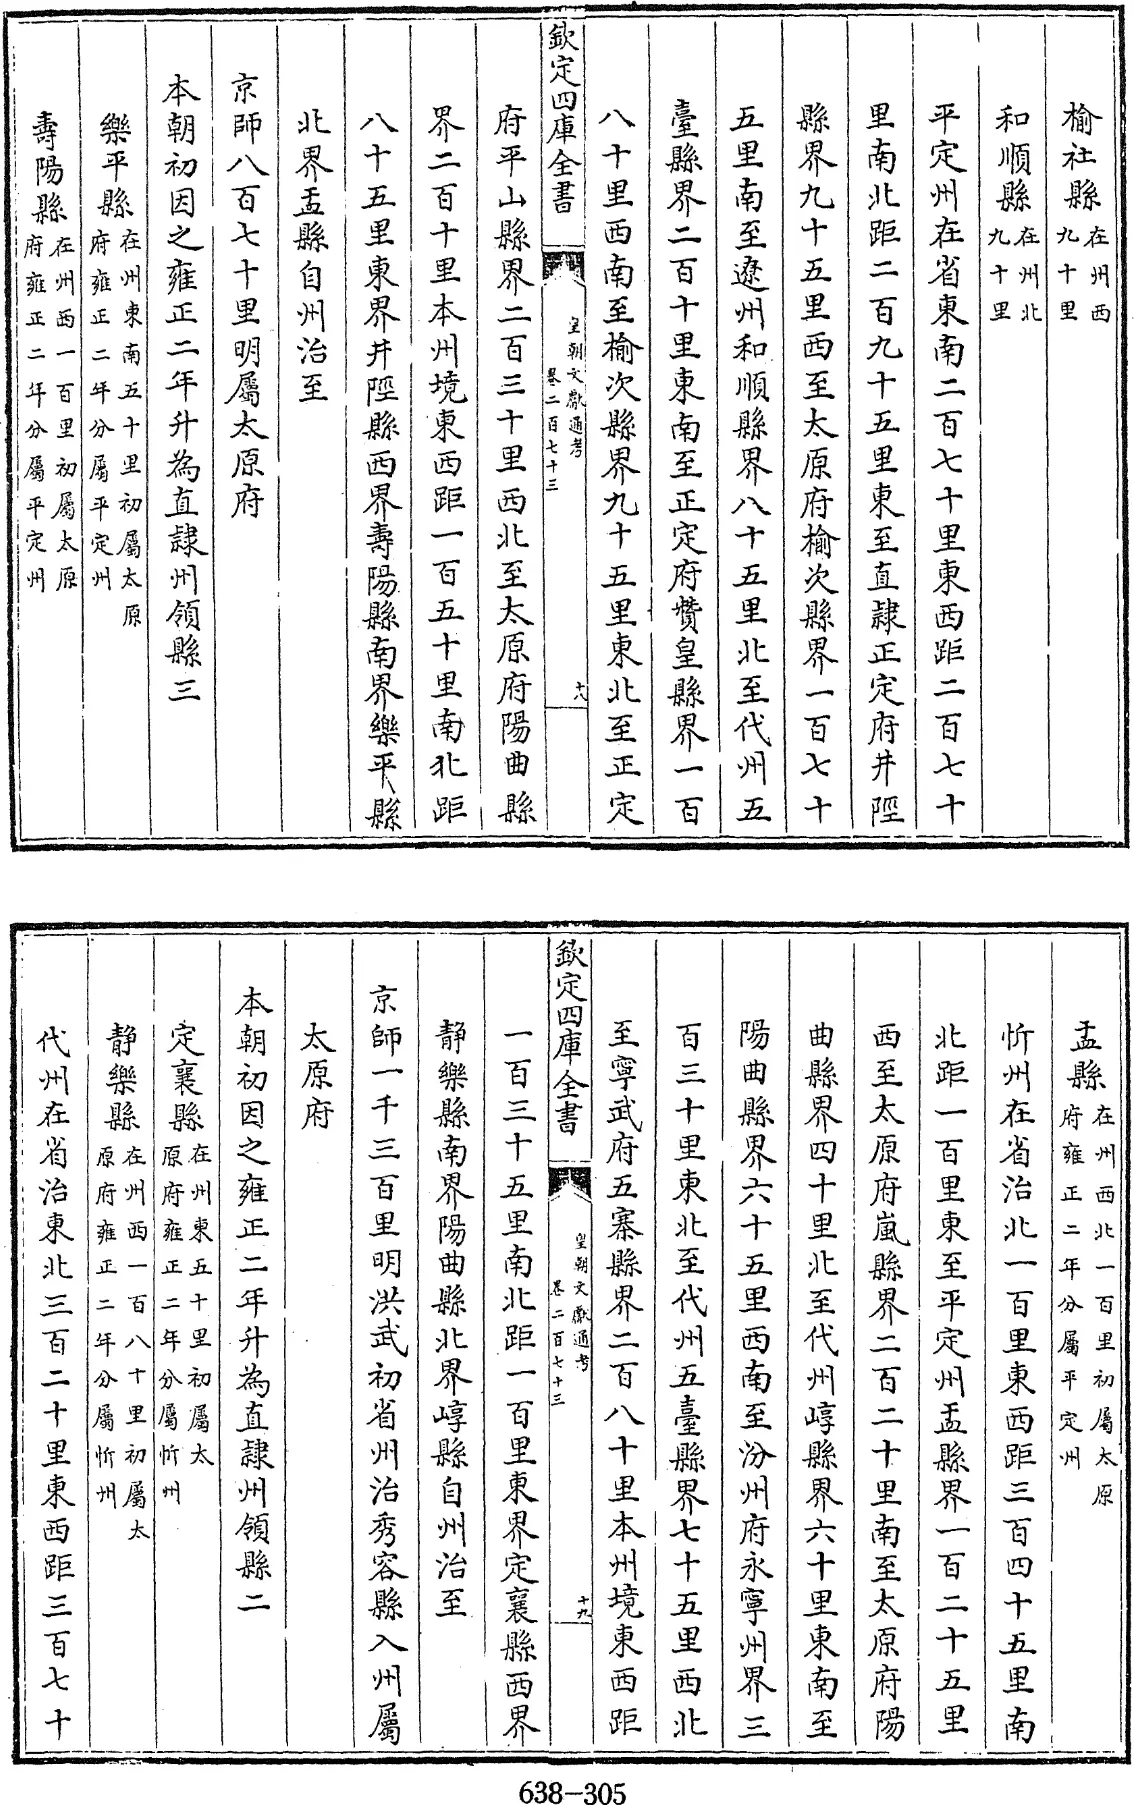 榆社縣在州西九十里
和順縣在州北九十里
平定州在省東南二百七十里東西距二百七十
里南北距二百九十五里東至直隷正定府井陘
縣界九十五里西至太原府榆次縣界一百七十
五里南至遼州和順縣界八十五里北至代州五
臺縣界二百十里東南至正定府贊皇縣界一百
八十里西南至榆次縣界九十五里東北至正定
欽定四庫全書
皇朝文獻通考
卷二百七十三
十八
府平山縣界二百三十里西北至太原府陽曲縣
界二百十里本州境東西距一百五十里南北距
八十五里東界井陘縣西界壽陽縣南界樂平縣
北界盂縣自州治至
京師八百七十里明屬太原府
本朝初因之雍正二年升為直隷州領縣三
樂平縣在州東南五十里初屬太原府雍正二年分屬平定州
壽陽縣在州西一百里初屬太原府雍正二年分屬平定州
盂縣在州西北一百里初屬太原府雍正二年分屬平定州
忻州在省治北一百里東西距三百四十五里南
北距一百里東至平定州盂縣界一百二十五里
西至太原府嵐縣界二百二十里南至太原府陽
曲縣界四十里北至代州崞縣界六十里東南至
陽曲縣界六十五里西南至汾州府永寧州界三
百三十里東北至代州五臺縣界七十五里西北
至寧武府五寨縣界二百八十里本州境東西距
欽定四庫全書
皇朝文獻通考
卷二百七十三
十九
一百三十五里南北距一百里東界定襄縣西界
靜樂縣南界陽曲縣北界崞縣自州治至
京師一千三百里明洪武初省州治秀容縣入州屬
太原府
本朝初因之雍正二年升為直隷州領縣二
定襄縣在州東五十里初屬太原府雍正二年分屬忻州
靜樂縣在州西一百八十里初屬太原府雍正二年分屬忻州
代州在省治東北三百二十里東西距三百七十
638-305